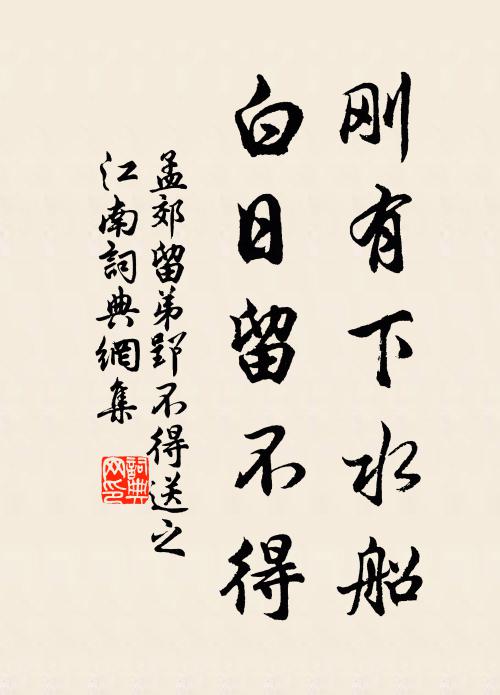 刚有下水船
白日留不得
孟郊留弟郢不得送之
江南詞典網集
詞典
网印